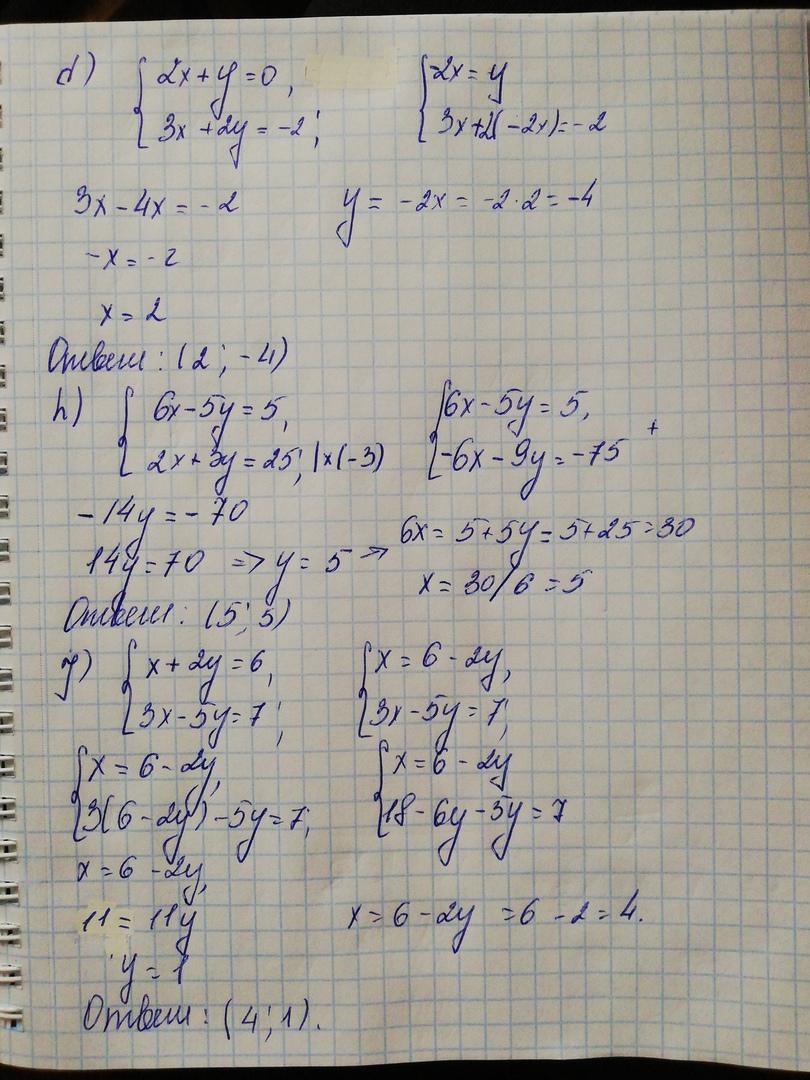 d) { 2x + y = 0, { -2x = y
3x + 2y = -2; 3x + 2(-2x) = -2
3x - 4x = -2 y = -2x = -2·2 = -4
-x = -2
x = 2
Ответ: (2; -4)
h) { 6x - 5y = 5, { 6x - 5y = 5, +
2x + 3y = 25; |x(-3) -6x - 9y = -75
-14y = -70
14y = 70 => y = 5 => 6x = 5 + 5y = 5 + 25 = 30
x = 30/6 = 5
Ответ: (5; 5)
{ x + 2y = 6, { x = 6 - 2y,
3x - 5y = 7; 3x - 5y = 7;
{ x = 6 - 2y, { x = 6 - 2y
3(6 - 2y) - 5y = 7; 18 - 6y - 5y = 7
x = 6 - 2y,
11 = 11y x = 6 - 2y = 6 - 2 = 4.
y = 1
Ответ: (4; 1).